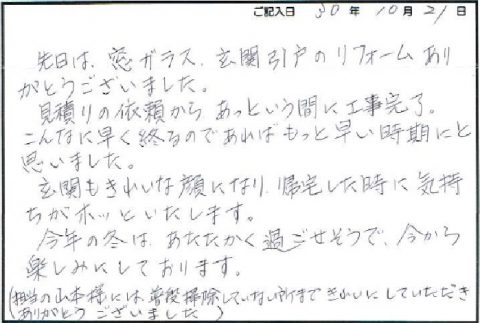 ご記入日 30 年 10 月 21 日
先日は、窓ガラス、玄関引戸のリフォームあり
がとうございました。
見積りの依頼から あっという間に工事完了。
こんなに早く終るのであればもっと早い時期にと
思いました。
玄関もきれいな顔になり、帰宅した時に気持
ちがホッといたします。
今年の冬は、あたたかく過ごせそうで、今から
楽しみにしております。
(担当の山本様には、普段掃除していない所まできれいにしていただき
ありがとうございました)